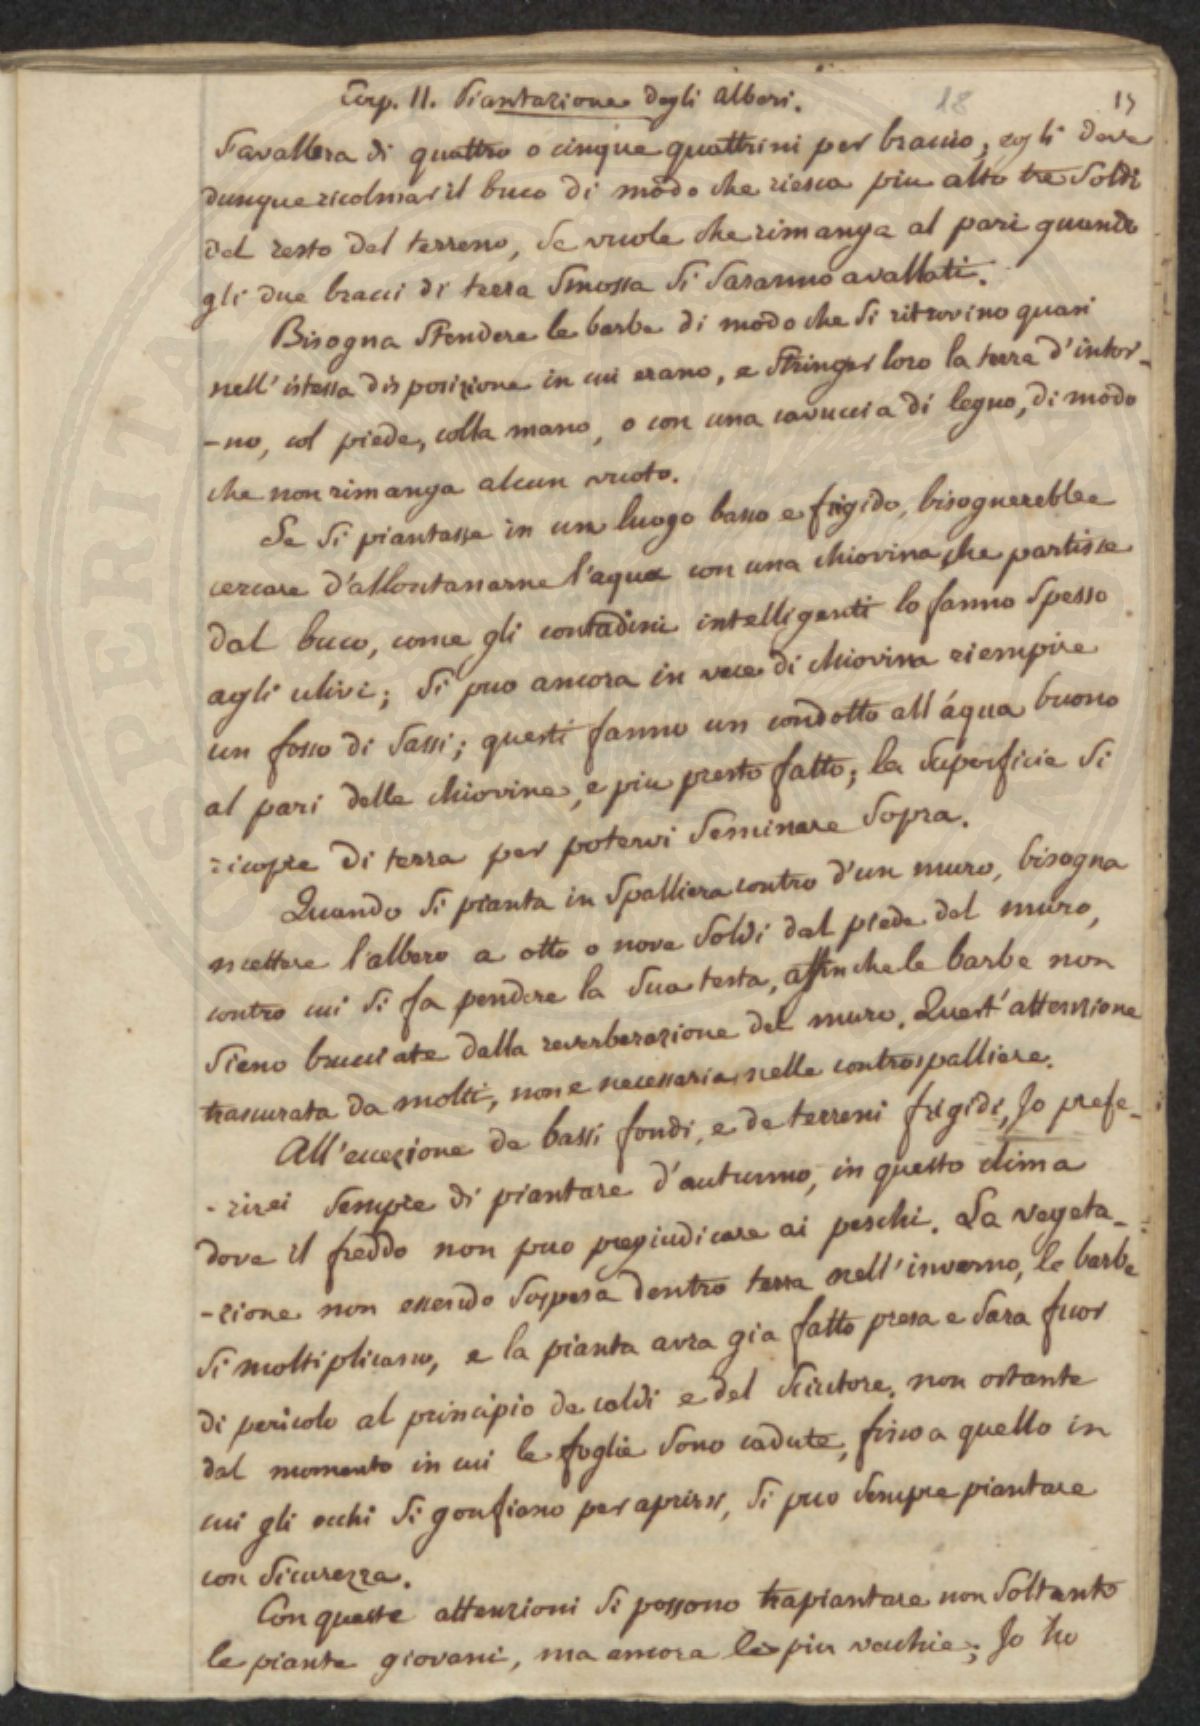 Cap. II. Piantazione degli alberi. 18 15
s'avallera di quattro o cinque quattrini per braccio, egli deve
dunque ricolmar il buco di modo che riesca piu alto tre soldi
del resto del terreno, se vuole che rimanga al pari quando
gli due bracci di terra smossa si saranno avallati.
Bisogna stendere le barbe di modo che si ritrovino quasi
nell' istessa disposizione in cui erano, e stringer loro la terra d'intor-
-no, col piede, colla mano, o con una cavuccia di legno, di modo
che non rimanga alcun vuoto.
Se si piantasse in un luogo basso e frigido, bisognerebbe
cercare d'allontanarne l'aqua con una chiovina che partisse
dal buco, come gli contadini intelligenti lo fanno spesso
agli ulivi; si puo ancora in vece di chiovina riempire
un fosso di sassi; questi fanno un condotto all'áqua buono
al pari delle chiovine, e piu presto fatto; la superficie si
ricopre di terra per potervi seminare sopra.
Quando si pianta in spalliera contro d'un muro, bisogna
mettere l'albero a otto o nove soldi dal piede del muro,
contro cui si fa pendere la sua testa, affinche le barbe non
sieno bruciate dalla reverberazione del muro. Quest' attenzione
trascurata da molti, non e necessaria nelle controspalliere.
All'eccezione de bassi fondi, e de terreni frigidi, Io prefe-
-rirei sempre di piantare d'autunno, in questo clima
dove il freddo non puo pregiudicare ai peschi. La vegeta-
-zione non essendo sospesa dentro terra nell'inverno, le barbe
si moltiplicano, e la pianta avra gia fatto presa e sara fuor
di pericolo al principio de caldi e del sciutore, non ostante
dal momento in cui le foglie sono cadute, fino a quello in
cui gli occhi si gonfiano per aprirsi, si puo sempre piantare
con sicurezza.
Con queste attenzioni si possono trapiantare non soltanto
le piante giovani, ma ancora le piu vecchie; Io ho